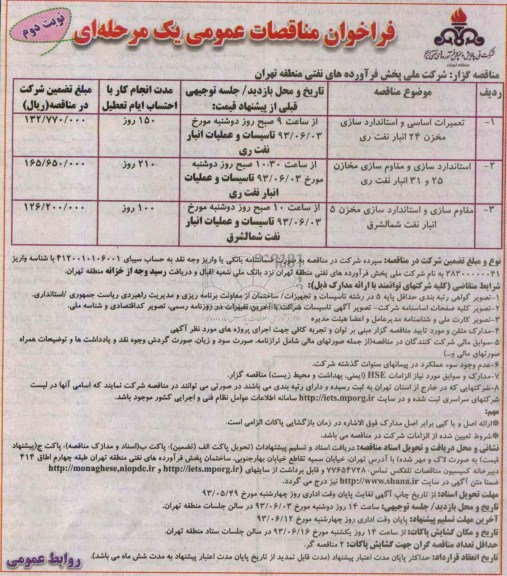 نوبت دوم
فراخوان مناقصات عمومی یک مرحله‌ای
شرکت ملی پخش فرآورده‌های نفتی ایران
منطقه تهران
مناقصه گزار: شرکت ملی پخش فرآورده های نفتی منطقه تهران
ردیف
موضوع مناقصه
تاریخ و محل بازدید/ جلسه توجیهی قبلی از پیشنهاد قیمت:
مدت انجام کار با احتساب ایام تعطیل
مبلغ تضمین شرکت در مناقصه(ریال)
۱-
تعمیرات اساسی و استاندارد سازی
مخزن ۲۴ انبار نفت ری
از ساعت ۹ صبح روز دوشنبه مورخ
۹۳/۰۶/۰۳ تاسیسات و عملیات انبار
نفت ری
۱۵۰ روز
۱۳۲/۷۷۰/۰۰۰
۲-
استاندارد سازی و مقاوم سازی مخازن
۲۵ و ۳۱ انبار نفت ری
از ساعت ۱۰:۳۰ صبح روز دوشنبه
مورخ ۹۳/۰۶/۰۳ تاسیسات و عملیات
انبار نفت ری
۲۱۰ روز
۱۶۵/۶۵۰/۰۰۰
۳-
مقاوم سازی و استاندارد سازی مخزن ۵
انبار نفت شمالشرق
از ساعت ۱۰ صبح روز دوشنبه مورخ
۹۳/۰۶/۰۳ تاسیسات و عملیات انبار
نفت شمالشرق
۱۰۰ روز
۱۲۶/۲۰۰/۰۰۰
نوع و مبلغ تضمین شرکت در مناقصه: سپرده شرکت در مناقصه به صورت ضمانتنامه بانکی یا واریز وجه نقد به حساب سیبای ۴۱۲۰۰۱۰۱۰۶۰۰۱ با شناسه واریز
۳۸۳۰۰۰۰۰۰۴۱ به نام شرکت ملی پخش فرآورده های نفتی منطقه تهران نزد بانک ملی شعبه اقبال و دریافت رسید وجه از خزانه منطقه تهران.
شرایط متقاضی (کلیه شرکتهای توانمند با ارائه مدارک ذیل):
۱-تصویر گواهی رتبه بندی حداقل پایه ۵ در رشته تاسیسات و تجهیزات/ ساختمان از معاونت برنامه ریزی و مدیریت راهبردی ریاست جمهوری /استانداری.
۲-تصویر کلیه صفحات اساسنامه شرکت- تصویر آگهی تاسیسات شرکت با آخرین تغییرات در روزنامه رسمی، تصویر کداقتصادی و شناسه ملی.
۳-تصویر کارت ملی و شناسنامه مدیرعامل و اعضا هیئت مدیره
۴-مدارک متقن و مورد تایید مناقصه گزار مبنی بر توان و تجربه کافی جهت اجرای پروژه های مورد نظر آگهی
۵-سوابق مالی شرکت کنندگان در مناقصه(از جمله صورتهای مالی شامل ترازنامه، صورت سود و زیان، صورت گردش وجوه نقد و یادداشت ها و توضیحات همراه
صورتهای مالی و...)
۶-عدم وجود سوء عملکرد در پیمانهای سنوات گذشته شرکت.
۷-مدارک و سوابق مورد نیاز الزامات HSE (ایمنی، بهداشت و محیط زیست) مناقصه گزار.
۸-شرکتهایی که در خارج از استان تهران به ثبت رسیده و دارای رتبه بندی می باشند در صورتی می توانند در مناقصه شرکت نمایند که اسامی آنها در لیست
شرکتهای سراسری ثبت شده و در سایت http://iets.mporg.ir سامانه اطلاعات عوامل نظام فنی و اجرایی کشور موجود باشد.
مهم:
*ارائه اصل و یا کپی برابر اصل مدارک فوق الاشاره در زمان بازگشایی پاکات الزامی است.
*شروط تعیین شده از الزامات شرکت در مناقصه می باشد.
نشانی و محل دریافت و تحویل اسناد مناقصه: دریافت اسناد و تسلیم پیشنهادات (تحویل پاکت الف (تضمین)، پاکت ب(اسناد و مدارک مناقصه)، پاکت ج(پیشنهاد
قیمت) به صورت لاک و مهر شده) با آدرس تهران، خیابان سمیه تقاطع خیابان بهارجنوبی، ساختمان پخش فرآورده های نفتی منطقه تهران طبقه چهارم اطاق ۴۱۴
دبیرخانه کمیسیون مناقصات تلفکس تماس. ۷۷۶۵۴۷۲۸ و قابل برداشت از سایتهای (http://iets.mporg.ir و http://monaghese,niopdc.ir)
ضمنا متن آگهی در سایت http://www.shana.ir نیز درج می گردد.
مهلت تحویل اسناد: از تاریخ چاپ آگهی لغایت پایان وقت اداری روز چهارشنبه مورخ ۹۳/۰۵/۲۹
تاریخ و محل بازدید/ جلسه توجیهی: ساعت ۱۴ روز دوشنبه مورخ ۹۳/۰۶/۰۳ در سالن جلسات منطقه تهران.
آخرین مهلت تسلیم پیشنهاد: پایان وقت اداری روز چهارشنبه مورخ ۹۳/۰۶/۱۲
تاریخ و مکان گشایش پاکات: از ساعت ۱۴ روز یکشنبه مورخ ۹۳/۰۶/۱۶ در سالن جلسات ستاد منطقه تهران.
حداقل تعداد مناقصه گران جهت گشایش پاکات: ۲ مناقصه گر.
تاریخ انعقاد قرارداد: حداکثر پایان مدت اعتبار پیشنهاد (مدت قابل تمدید از تاریخ پایان مدت اعتبار پیشنهاد به مدت شش ماه می باشد).
روابط عمومی